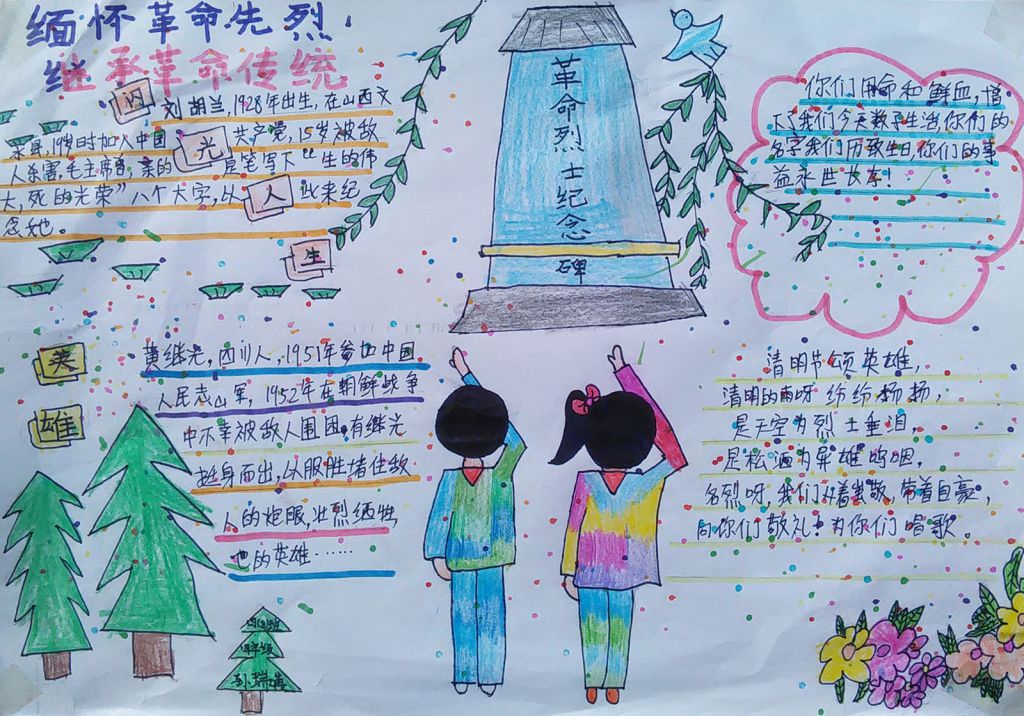 缅怀革命先烈
继承革命传统
闪
光
人
生
刘胡兰,1928年出生,在山西文
水县,14岁时加入中国共产党,15岁被敌
人杀害,毛主席
笔写下“生的伟
大,死的光荣”八个大字,以此来纪
念她。
革命烈士纪念
碑
你们用命和鲜血,
下了我们今天
生活,你们的
名字我们
你们的事
益永世长存!
英
雄
黄继光,四川人,1951年参加中国
人民志山军,1952年在朝鲜战争
中不幸被敌人围困,有继光
挺身而出,以服胜堵住敌
人的炮眼,壮烈牺牲
也的英雄……
清明节颂英雄,
清明的雨呀纷纷扬扬,
是天空为烈士垂泪,
是松
为英雄呜咽,
烈呀,我们
着崇敬,带着自豪,
向你们敬礼!为你们唱歌。